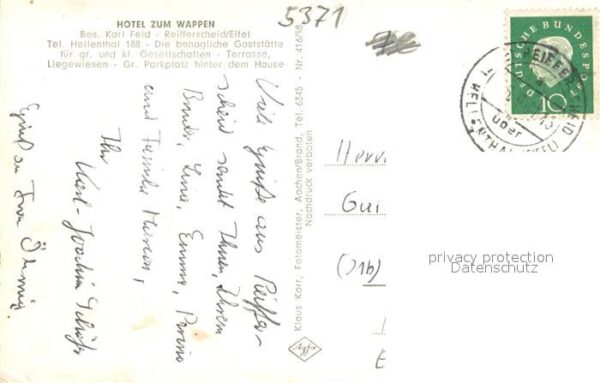 HOTEL ZUM WAPPEN
Bes. Karl Feld - Reifferscheid/Eifel
Tel. Hellenthal 188 - Die behagliche Gaststätte
für gr. und kl. Gesellschaften - Terrasse,
Liegewiesen - Gr. Parkplatz hinter dem Hause
5371
DEUTSCHE BUNDESPOST
10
über
Viele Grüße aus Reiffer-
scheid sendet Ihnen, Ihrem
Bruder, Emma,
und Familie
Ihr
Karl-Joachim
Gruß an Frau
Klaus Karr, Fotomeister, Aachen/Brand, Tel. 6345 - Nr. 416/58
Nachdruck verboten
Agfa
Herrn
Gui
(21b)
E
privacy protection
Datenschutz